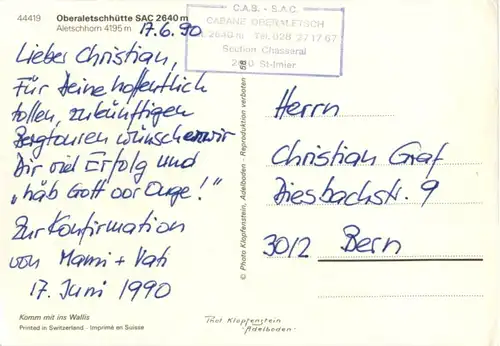 44419
Oberaletschhütte SAC 2640 m
Aletschhorn 4195 m
17.6.90
C.A.B. - S.A.C.
CABANE OBERALETSCH
2640 m Tél. 028 27 17 67
Section Chasseral
St-Imier
Lieber Christian,
Für Deine hoffentlich
tollen, zukünftigen
Bergtouren wünschen wir
Dir viel Erfolg und
„häb Gott vor Ouge!"
Zur Konfirmation
von Mami + Vati
17. Juni 1990
Komm mit ins Wallis
Printed in Switzerland - Imprimé en Suisse
© Photo Klopfenstein, Adelboden - Reproduktion verboten
Herrn
Christian Graf
Diesbachstr. 9
3012 Bern
Phot. Klopfenstein
Adelboden